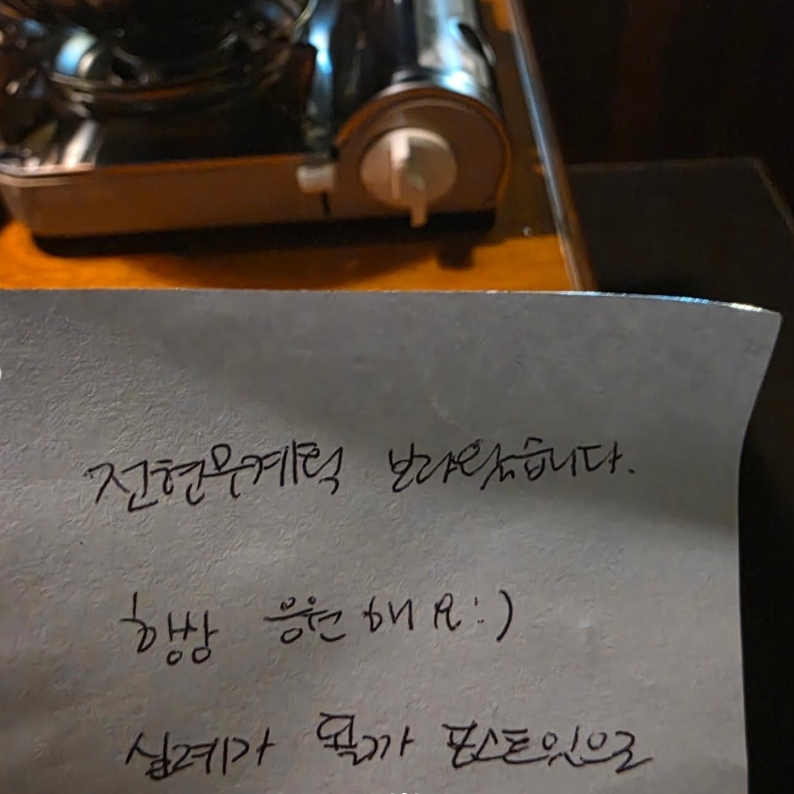 전현무계획 보고왔습니다.
항상 응원해요:)
실례가 될까 포스트잇으로